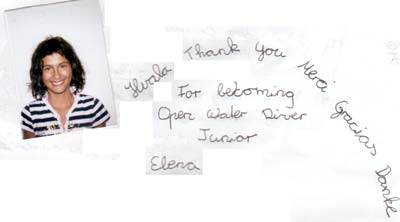 Hvala Thank you Merci Gracias Danke
For becoming
Open Water Diver
Junior
Elena